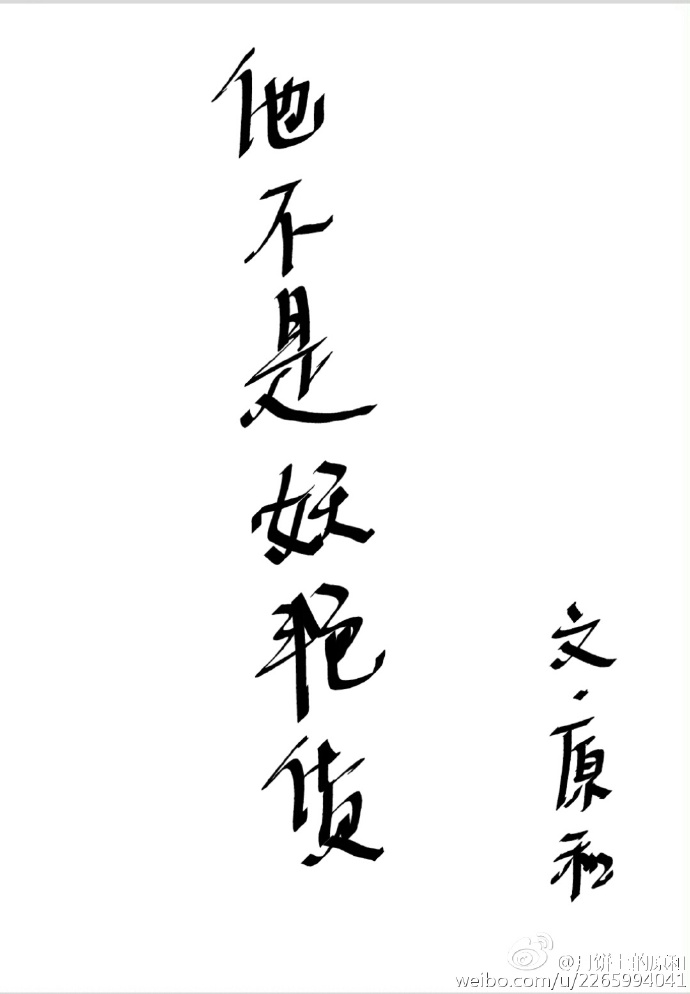 他不是妖艳货
文·原和
@月饼上的原和
weibo.com/u/2265994041